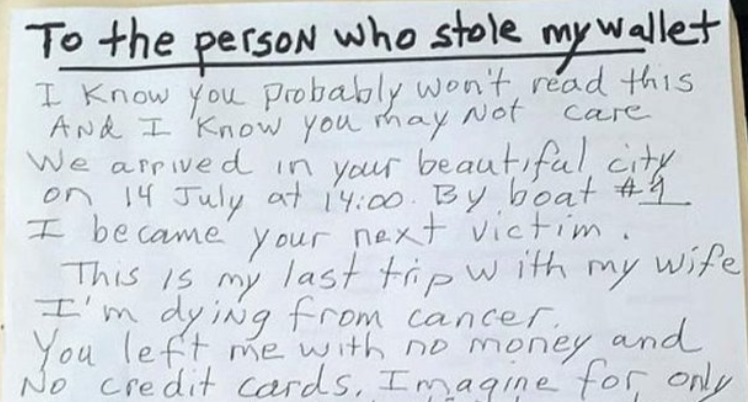 To the person who stole my wallet
I know you probably won't read this
And I know you may Not care
We arrived in your beautiful city
on 14 July at 14:00. By boat #9
I became your next victim.
This is my last trip with my wife
I'm dying from cancer.
You left me with no money and
No credit cards. Imagine for only